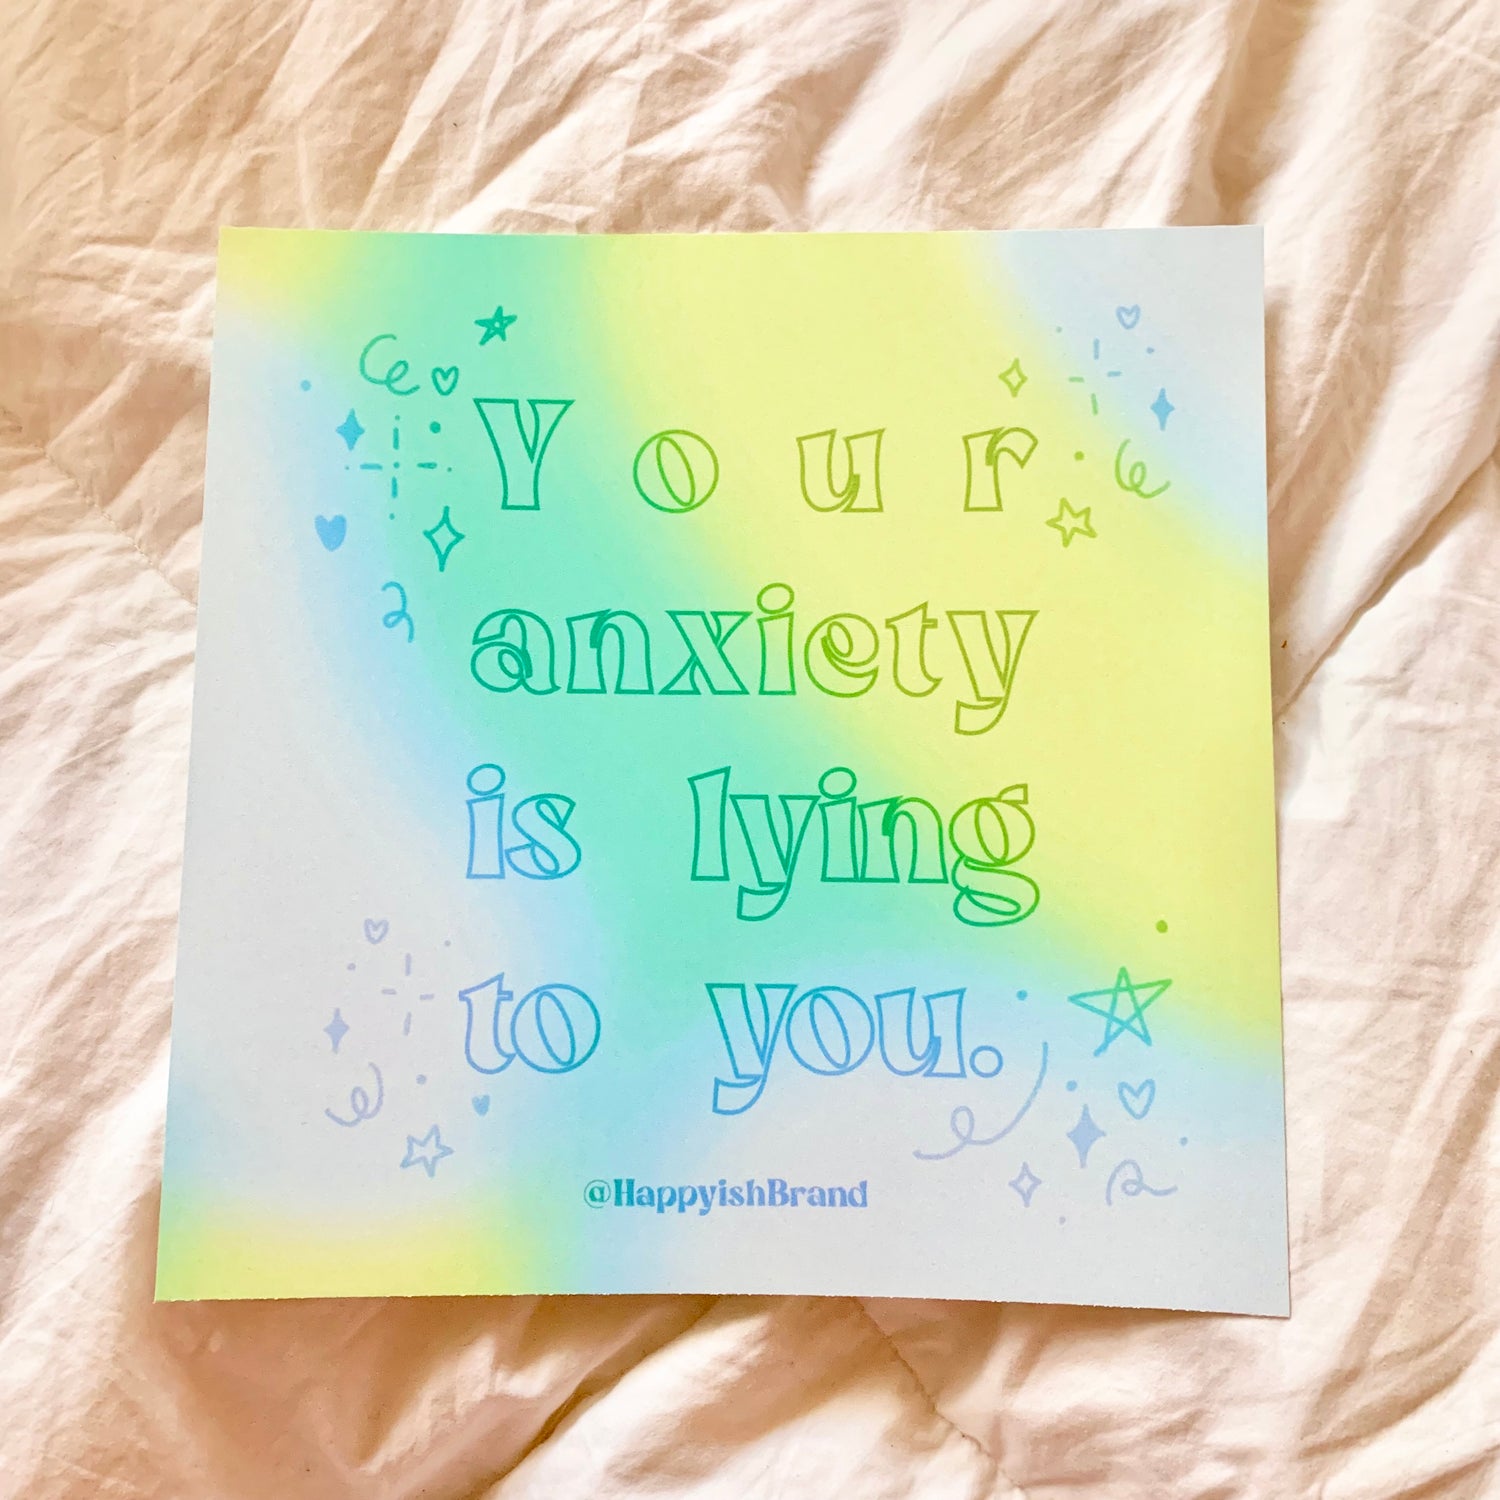 Your
anxiety
is lying
to you.
@HappyishBrand